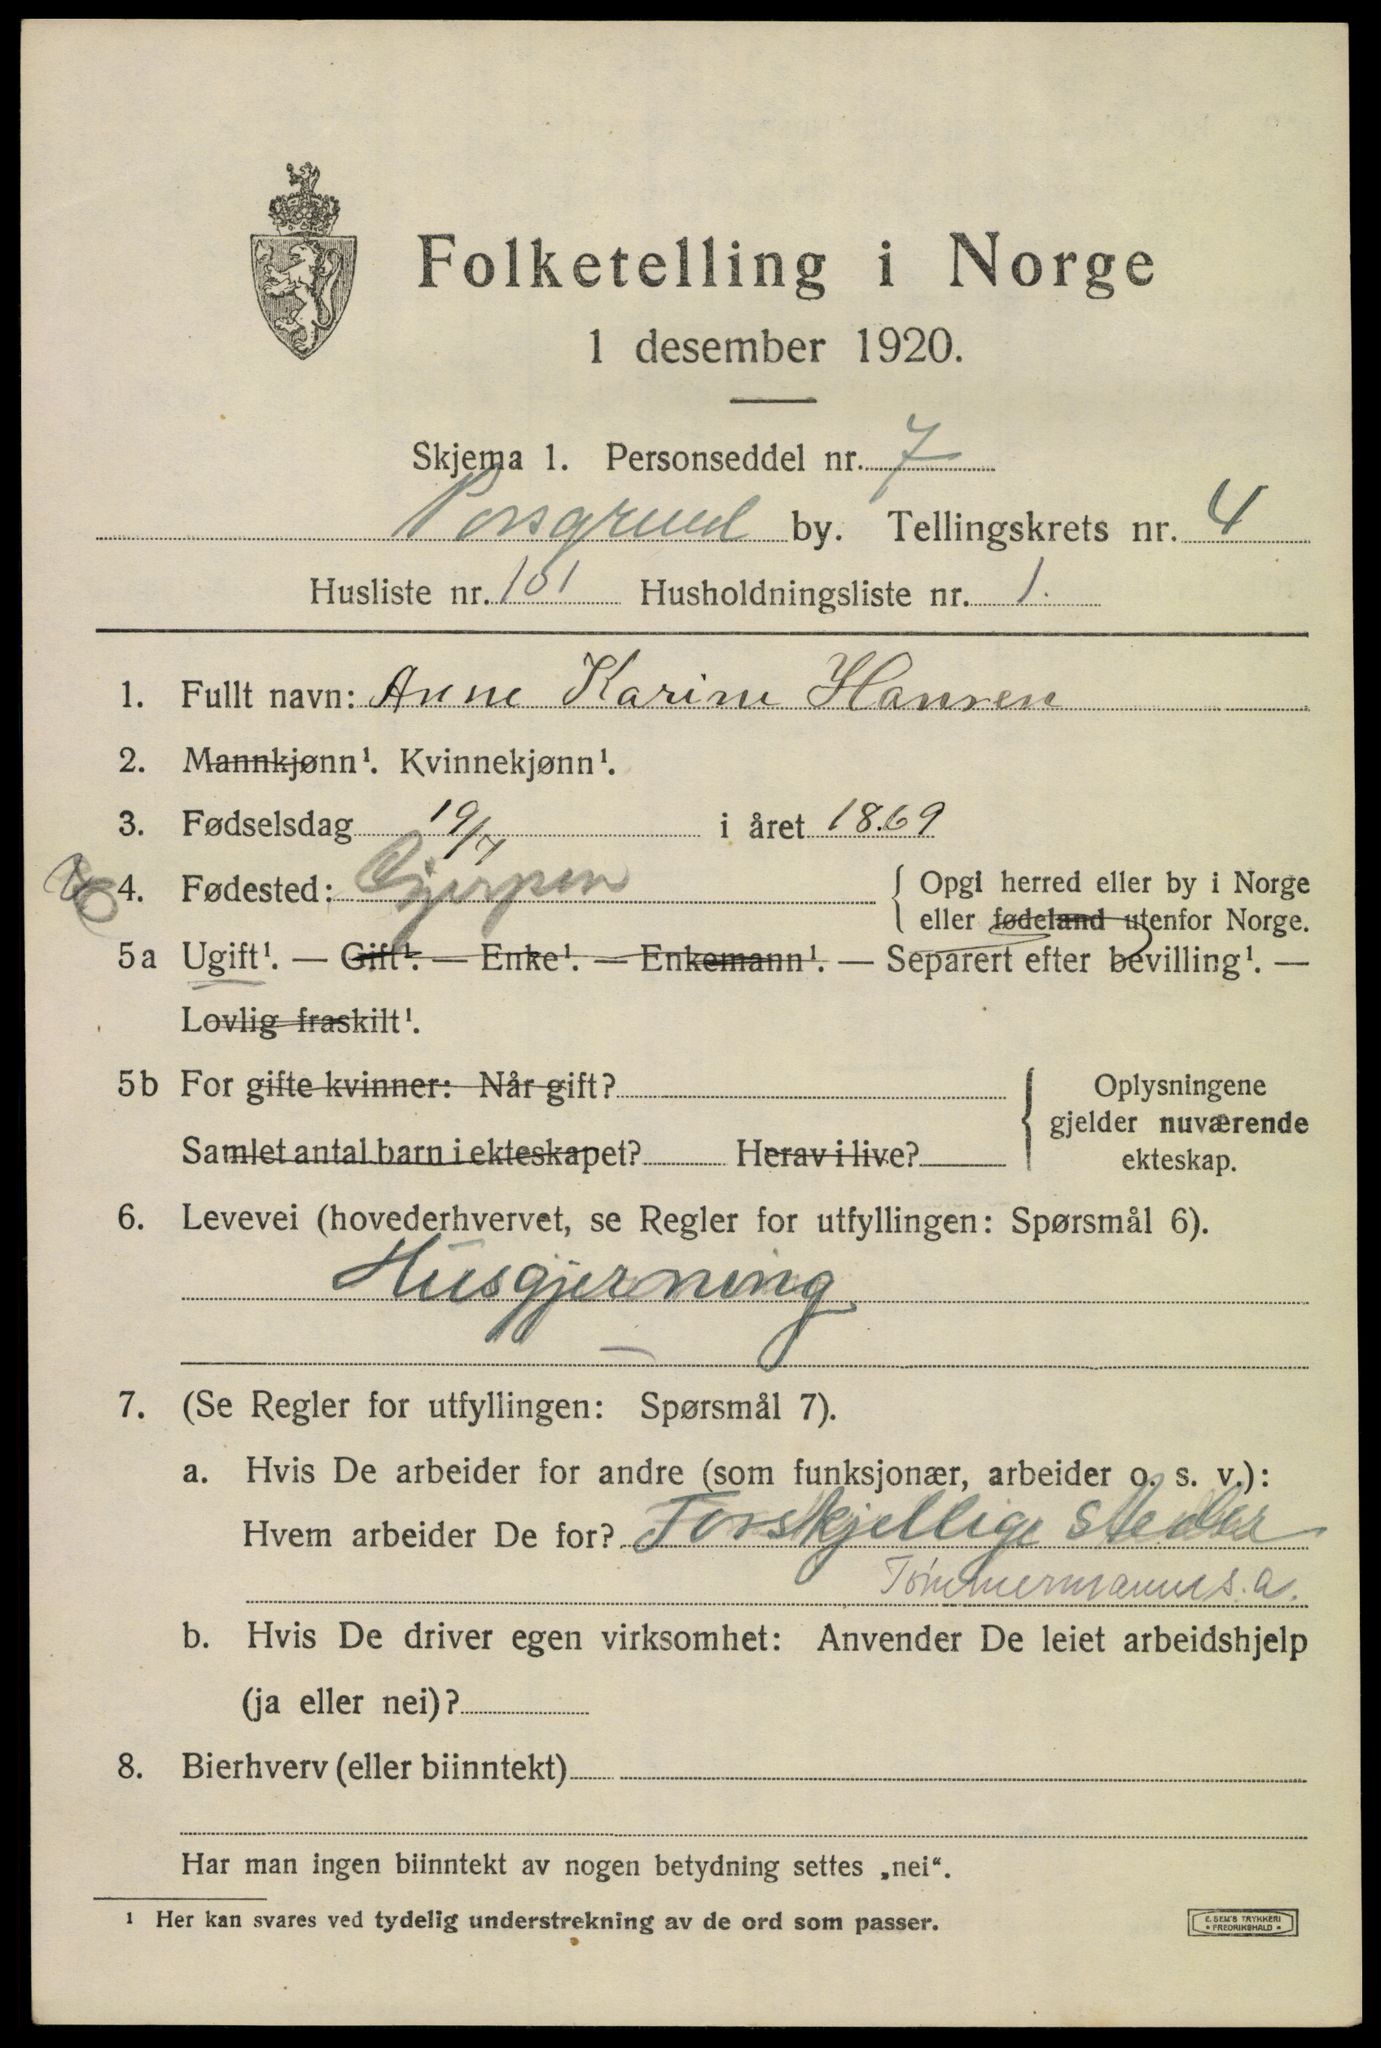 Folketelling i Norge
1 desember 1920.
Skjema 1. Personseddel nr. 7
Porsgrund by. Tellingskrets nr. 4
Husliste nr. 101 Husholdningsliste nr. 1.
1. Fullt navn: Anne Karine Hansen
2. Mannkjønn¹. Kvinnekjønn¹.
3. Fødselsdag 19/7 i året 1869
4. Fødested: Gjerpen { Opgi herred eller by i Norge
eller fødeland utenfor Norge.
5a Ugift¹. — Gift¹. — Enke¹. — Enkemann¹. — Separert efter bevilling¹. —
Lovlig fraskilt¹.
5b For gifte kvinner: Når gift? { Oplysningene
gjelder nuværende
Samlet antal barn i ekteskapet? Herav i live? ekteskap.
6. Levevei (hovederhvervet, se Regler for utfyllingen: Spørsmål 6).
Husgjerning
7. (Se Regler for utfyllingen: Spørsmål 7).
a. Hvis De arbeider for andre (som funksjonær, arbeider o. s. v.):
Hvem arbeider De for? Forskjellige steder
Tømmermanns.a.
b. Hvis De driver egen virksomhet: Anvender De leiet arbeidshjelp
(ja eller nei)?
8. Bierhverv (eller biinntekt)
Har man ingen biinntekt av nogen betydning settes „nei“.
¹ Her kan svares ved tydelig understrekning av de ord som passer.
E. SEM'S TRYKKERI
• FREDRIKSHALD •